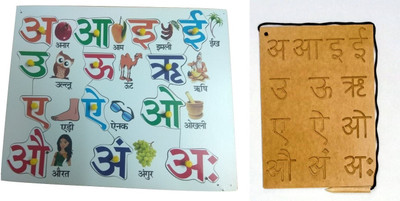 अ आ इ ई
अनार आम इमली ईख
उ ऊ ऋ
उल्लू ऊँट ऋषि
ए ऐ ओ
एड़ी ऐनक ओखली
औ अं अः
औरत अंगूर
अ आ इ ई
उ ऊ ऋ
ए ऐ ओ
औ अं अः